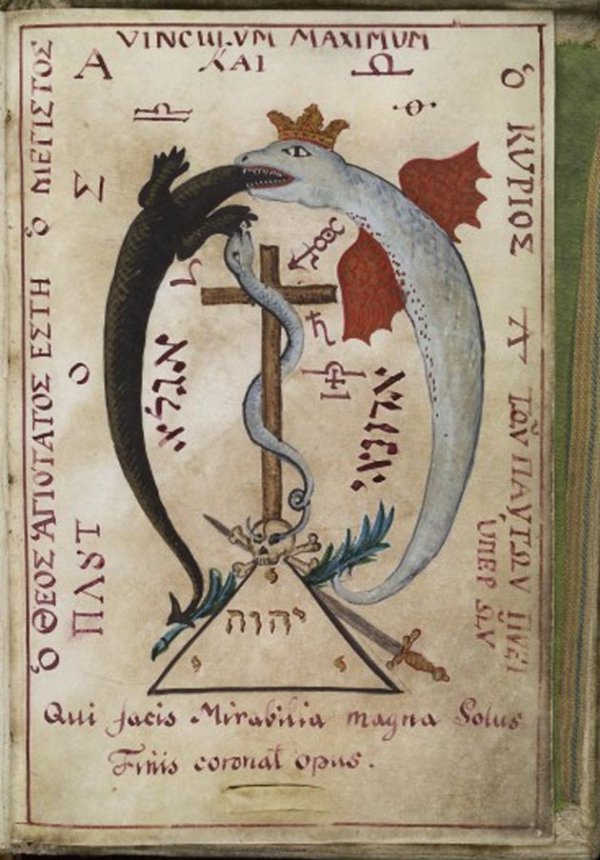 VINCULUM MAXIMUM
ΚΑΙ
Α
Σ
Ο
ὁ ΘΕΟΣ ἉΓΙΟΤΑΤΟΣ ΕΣΤΗ ὁ ΜΕΓΙΣΤΟΣ
ὁ ΚΥΡΙΟΣ
ΤΩΝ ΠΑΝΤΩΝ
ΥΠΕΡ ΩΝ
אגלא
יהוה
Qui facis Mirabilia magna Solus
Finis coronat opus.